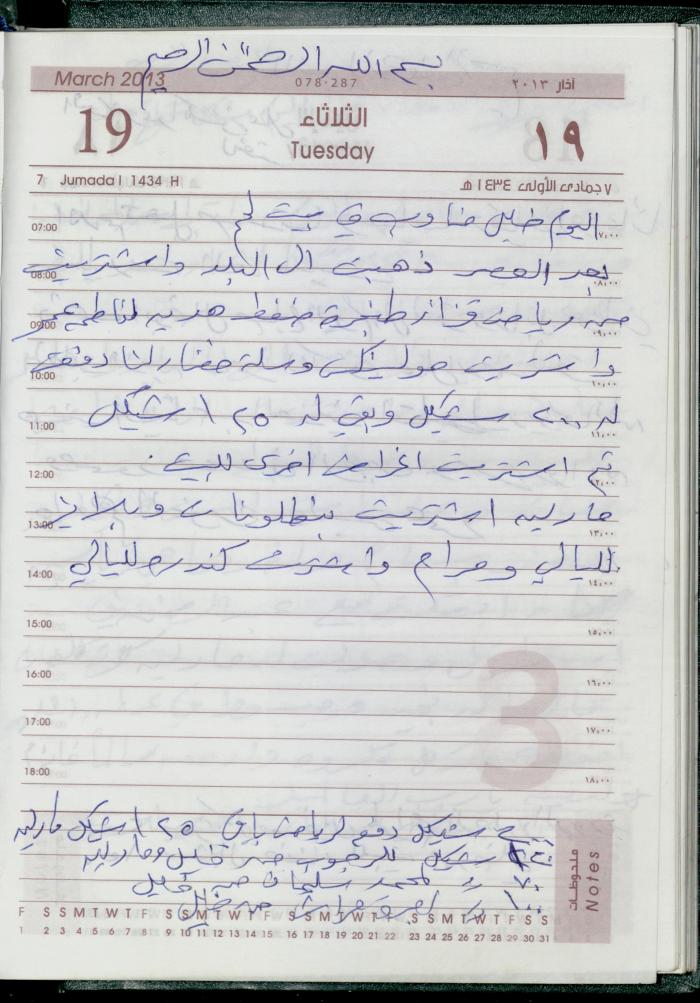 بسم الله الرحمن الرحيم
March 2013 078-287 آذار ٢٠١٣
19 الثلاثاء ١٩
Tuesday
7 Jumada I 1434 H ٧ جمادى الأولى ١٤٣٤ هـ
07:00 اليوم خليل مناوب في بيت لحم ٧,٠٠
08:00 بعد العصر ذهبت الى البلد واشتريت ٨,٠٠
09:00 من رياض قزاز طنجرة ضغط هديه لفاطمه ٩,٠٠
10:00 واشتريت وسلة لنا دفعت ١٠,٠٠
11:00 له ٢٠٠ شيكل وبقي له ١٢٥ شيكل ١١,٠٠
12:00 ثم اشتريت اغراض اخرى للبيت . ١٢,٠٠
13:00 ماريه اشترت بنطلونات وبلايز ١٣,٠٠
14:00 لليالي ومرام واشترت كندره لليالي ١٤,٠٠
15:00 ١٥,٠٠
16:00 ١٦,٠٠
3
17:00 ١٧,٠٠
18:00 ١٨,٠٠
شيكل دفع لرياض باقي ١٢٥ شيكل ماريه
شيكل من خليل وماريه
٧٠ لمحمد سليمان من خليل
١٠٠ من خليل
ملحوظات Notes
F S S M T W T F S S M T W T F S S M T W T F S S M T W T F S S
1 2 3 4 5 6 7 8 9 10 11 12 13 14 15 16 17 18 19 20 21 22 23 24 25 26 27 28 29 30 31